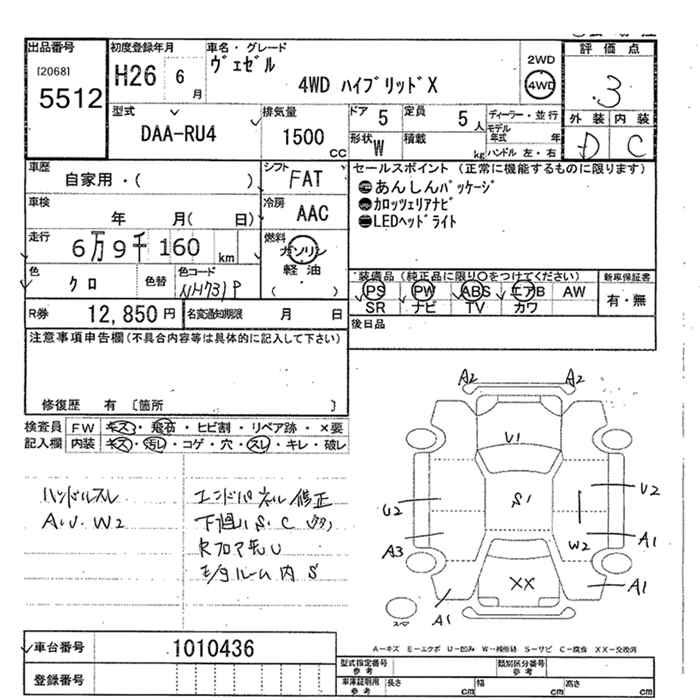 出品番号
[2068]
5512
初度登録年月
H26 6 月
車名・グレード
ヴェゼル
4WD ハイブリッドX
2WD
4WD
評価点
3
外装 内装
D C
型式
DAA-RU4
排気量
1500 CC
ドア 5
定員 5 人
形状 W
積載 kg
ディーラー・並行
モデル年式 年
ハンドル 左・右
車歴
自家用・( )
シフト
FAT
車検
年 月( 日)
冷房
AAC
走行
6万9千160 km
燃料
ガソリン
軽油
( )
色
クロ
色替
色コード
NH731P
R券 12,850円
名変通知期限 月 日
セールスポイント (正常に機能するものに限ります)
あんしんパッケージ
カロッツェリアナビ
LEDヘッドライト
装備品 (純正品に限り○をつけてください)
新車保証書
PS PW ABS エアB AW
SR ナビ TV カワ
有・無
後日品
注意事項申告欄(不具合内容等は具体的に記入して下さい)
修復歴 有 〔箇所 〕
検査員記入欄
FW キズ・飛石・ヒビ割・リペア跡・×要
内装 キズ・汚レ・コゲ・穴・スレ・キレ・破レ
ハンドルスレ
A・U・W2
エンドパネル修正
下廻りS・C
RフロアもU
モンタルーム内S
A2 A2
U1
U2 S1 U2
A3 W2 A1
XX
A1 A1
車台番号 1010436
登録番号
A-キズ E-エクボ U-凹み W-補修跡 S-サビ C-腐食 XX-交換済
型式指定番号参考
類別区分番号参考
車庫証明用参考 長さ cm 幅 cm 高さ cm